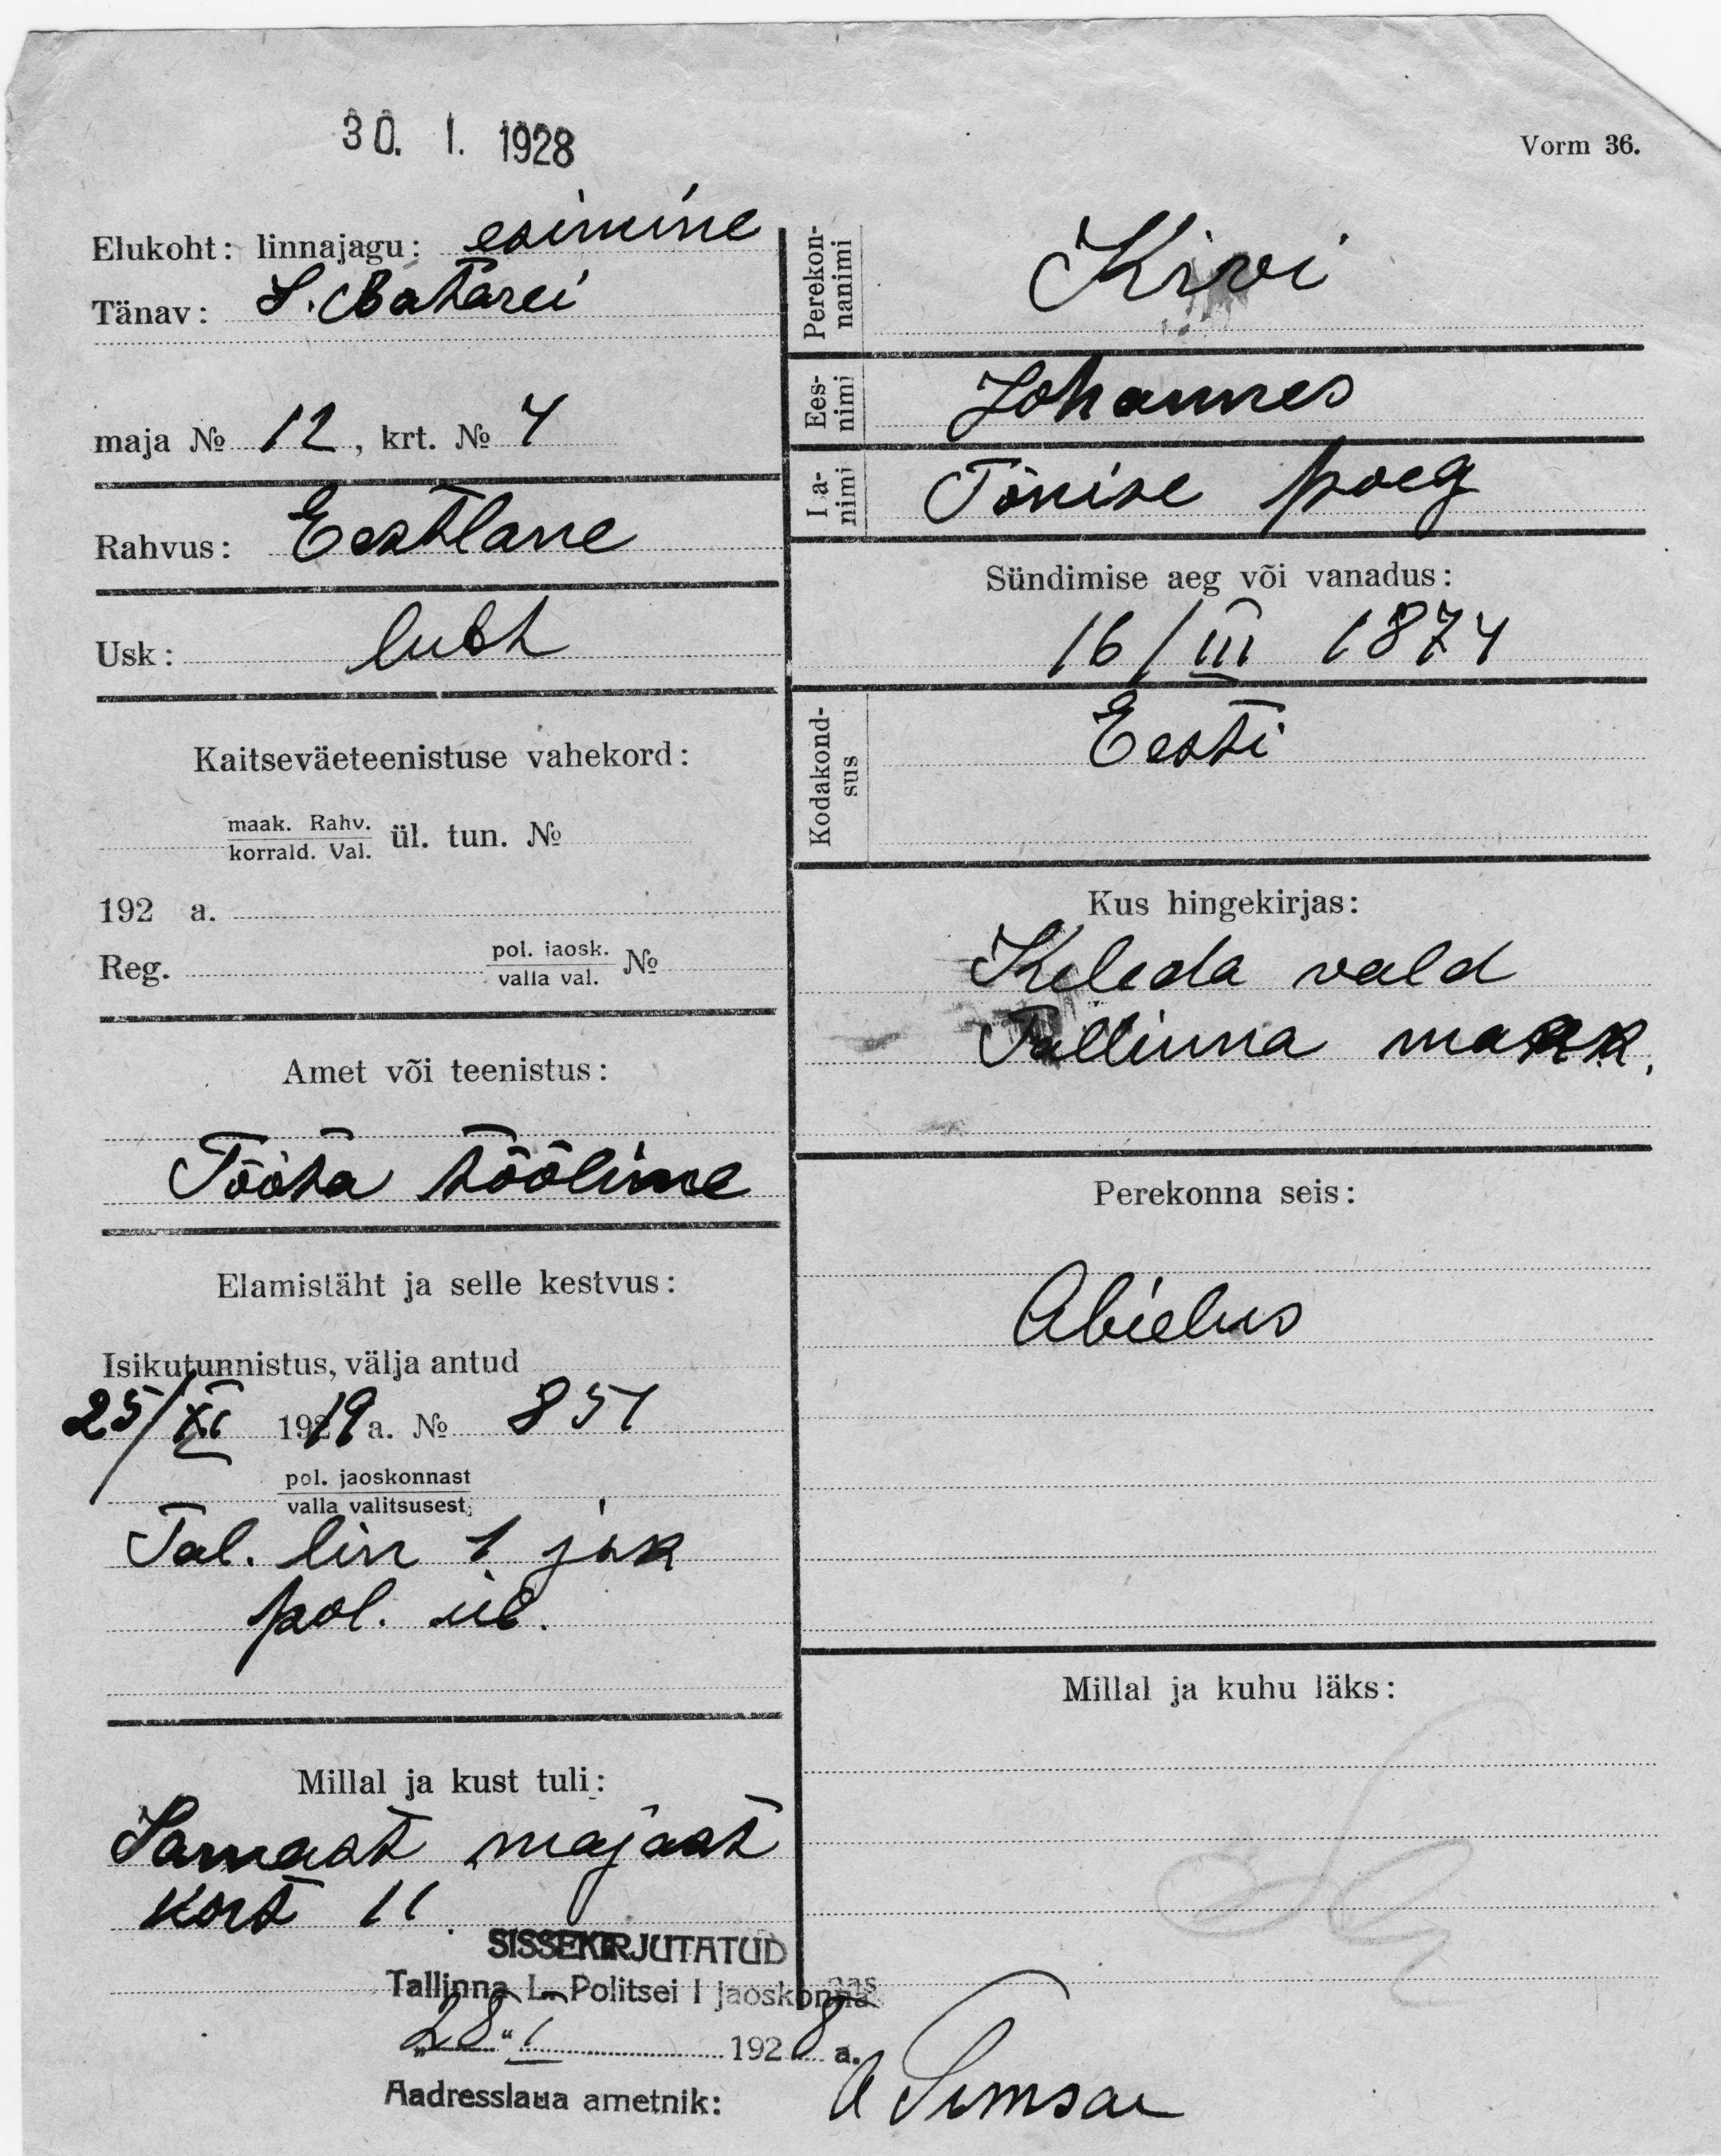 30. I. 1928
Vorm 36.
Elukoht: linnajagu: esimine
Tänav: S. Batarei
maja № 12, krt. № 4
Rahvus: Eestlane
Usk: lutt
Kaitseväeteenistuse vahekord:
maak. Rahv.
korrald. Val. ül. tun. №
192 a.
Reg. pol. jaosk.
valla val. №
Amet või teenistus:
Tööta tööline
Elamistäht ja selle kestvus:
Isikutunnistus, välja antud
25/XI 1919 a. № 851
pol. jaoskonnast
valla valitsusest
Tal. lin 1 jsk
pol. ül.
Millal ja kust tuli:
Samast majast
kort 11.
SISSEKIRJUTATUD
Tallinna L. Politsei I jaoskonnas
"28" I 1928 a.
Aadresslaua ametnik:
Perekon-
nanimi Kivi
Ees-
nimi Johannes
Isa-
nimi Tõnise poeg
Sündimise aeg või vanadus:
16/III 1874
Kodakond-
sus Eesti
Kus hingekirjas:
Keleda vald
Tallinna maak.
Perekonna seis:
Abielus
Millal ja kuhu läks: